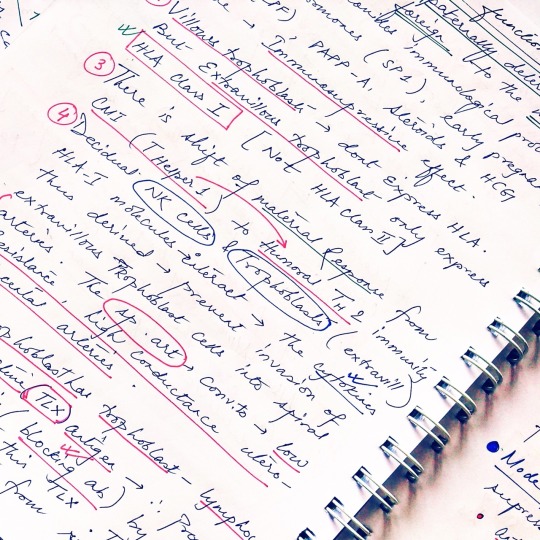 function
paternally deri
foreign to the
consider immunological prob
PF)
hormones (SP1), early pregna
→ PAPP-A, steroids & HCG
Villous trophoblast → Immunosuppressive effect.
But Extravillous trophoblast → dont Express HLA.
HLA class I [Not HLA class II] only express
③ There is shift of maternal Response from
CMI (T Helper 1) to humoral TH2 immunity
④ Decidual NK cells & Trophoblasts (extravill)
HLA-I molecules → interact → the cytokines
thus desired → prevent invasion of
extravillous Trophoblast cells into spiral
arteries. The sp. art → Convito → low
resistance, high conductance utero-
cental arteries.
ophoblast has trophoblast - lympho
TLX antigen → ∴ Pro
(blocking ab) by
this TLX
from
Mode
supress